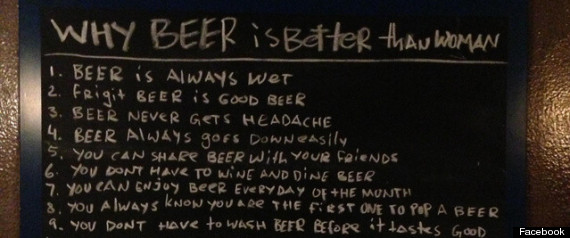 WHY BEER is Better than WOMAN
1. BEER is ALWAYS WET
2. Frigit BEER is GOOD BEER
3. BEER NEVER GETS HEADACHE
4. BEER ALWAYS goes DOWN easily
5. YOU CAN SHARE BEER With YOUR FRIENDS
6. YOU DONT HAVE to WINE AND DINE BEER
7. YOU CAN ENJOY BEER EVERYDAY OF tHE MONTH
8. YOU ALWAYS KNOW YOU ARE THE FIRST ONE TO POP A BEER
9. YOU DONT HAVE to WASH BEER BEFORE it tastes GOOD
Facebook